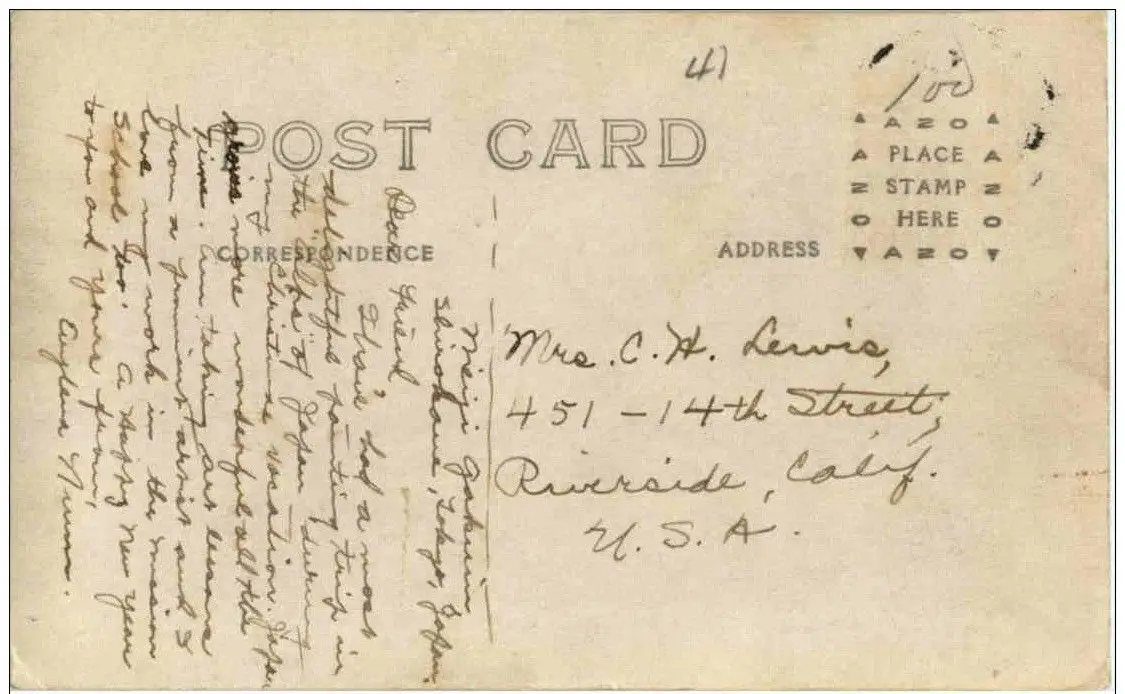 41
100
POST CARD
AZO
PLACE
STAMP
HERE
AZO
CORRESPONDENCE
ADDRESS
Meiji Gakuin
Shirokane, Tokyo, Japan.
Dear Friend
I have had a most
delightful painting trip in
the "Alps" of Japan during
my Christmas vacation. Japan
is more wonderful all the
time. Am taking art lessons
from a prominent artist and I
love my work in the mission
School too. A Happy New Year
to you and yours from,
Mrs. C. H. Lewis,
451-14th Street,
Riverside, Calif.
U.S.A.